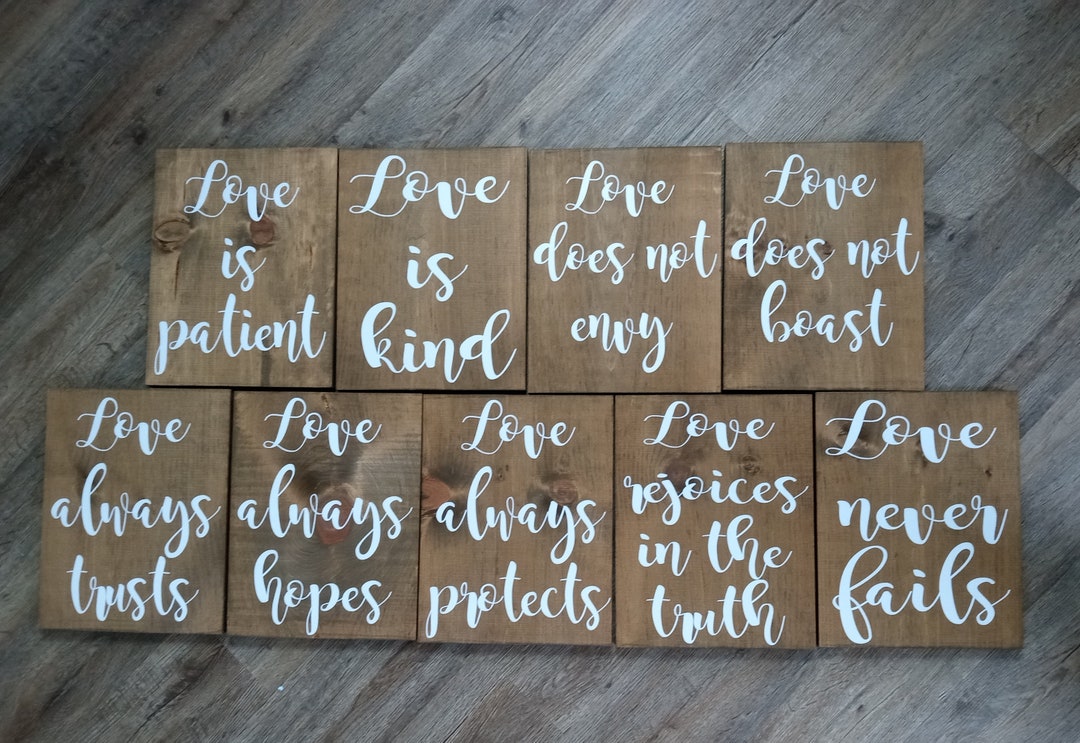 Love
is
patient
Love
is
kind
Love
does not
envy
Love
does not
boast
Love
always
trusts
Love
always
hopes
Love
always
protects
Love
rejoices
in the
truth
Love
never
fails